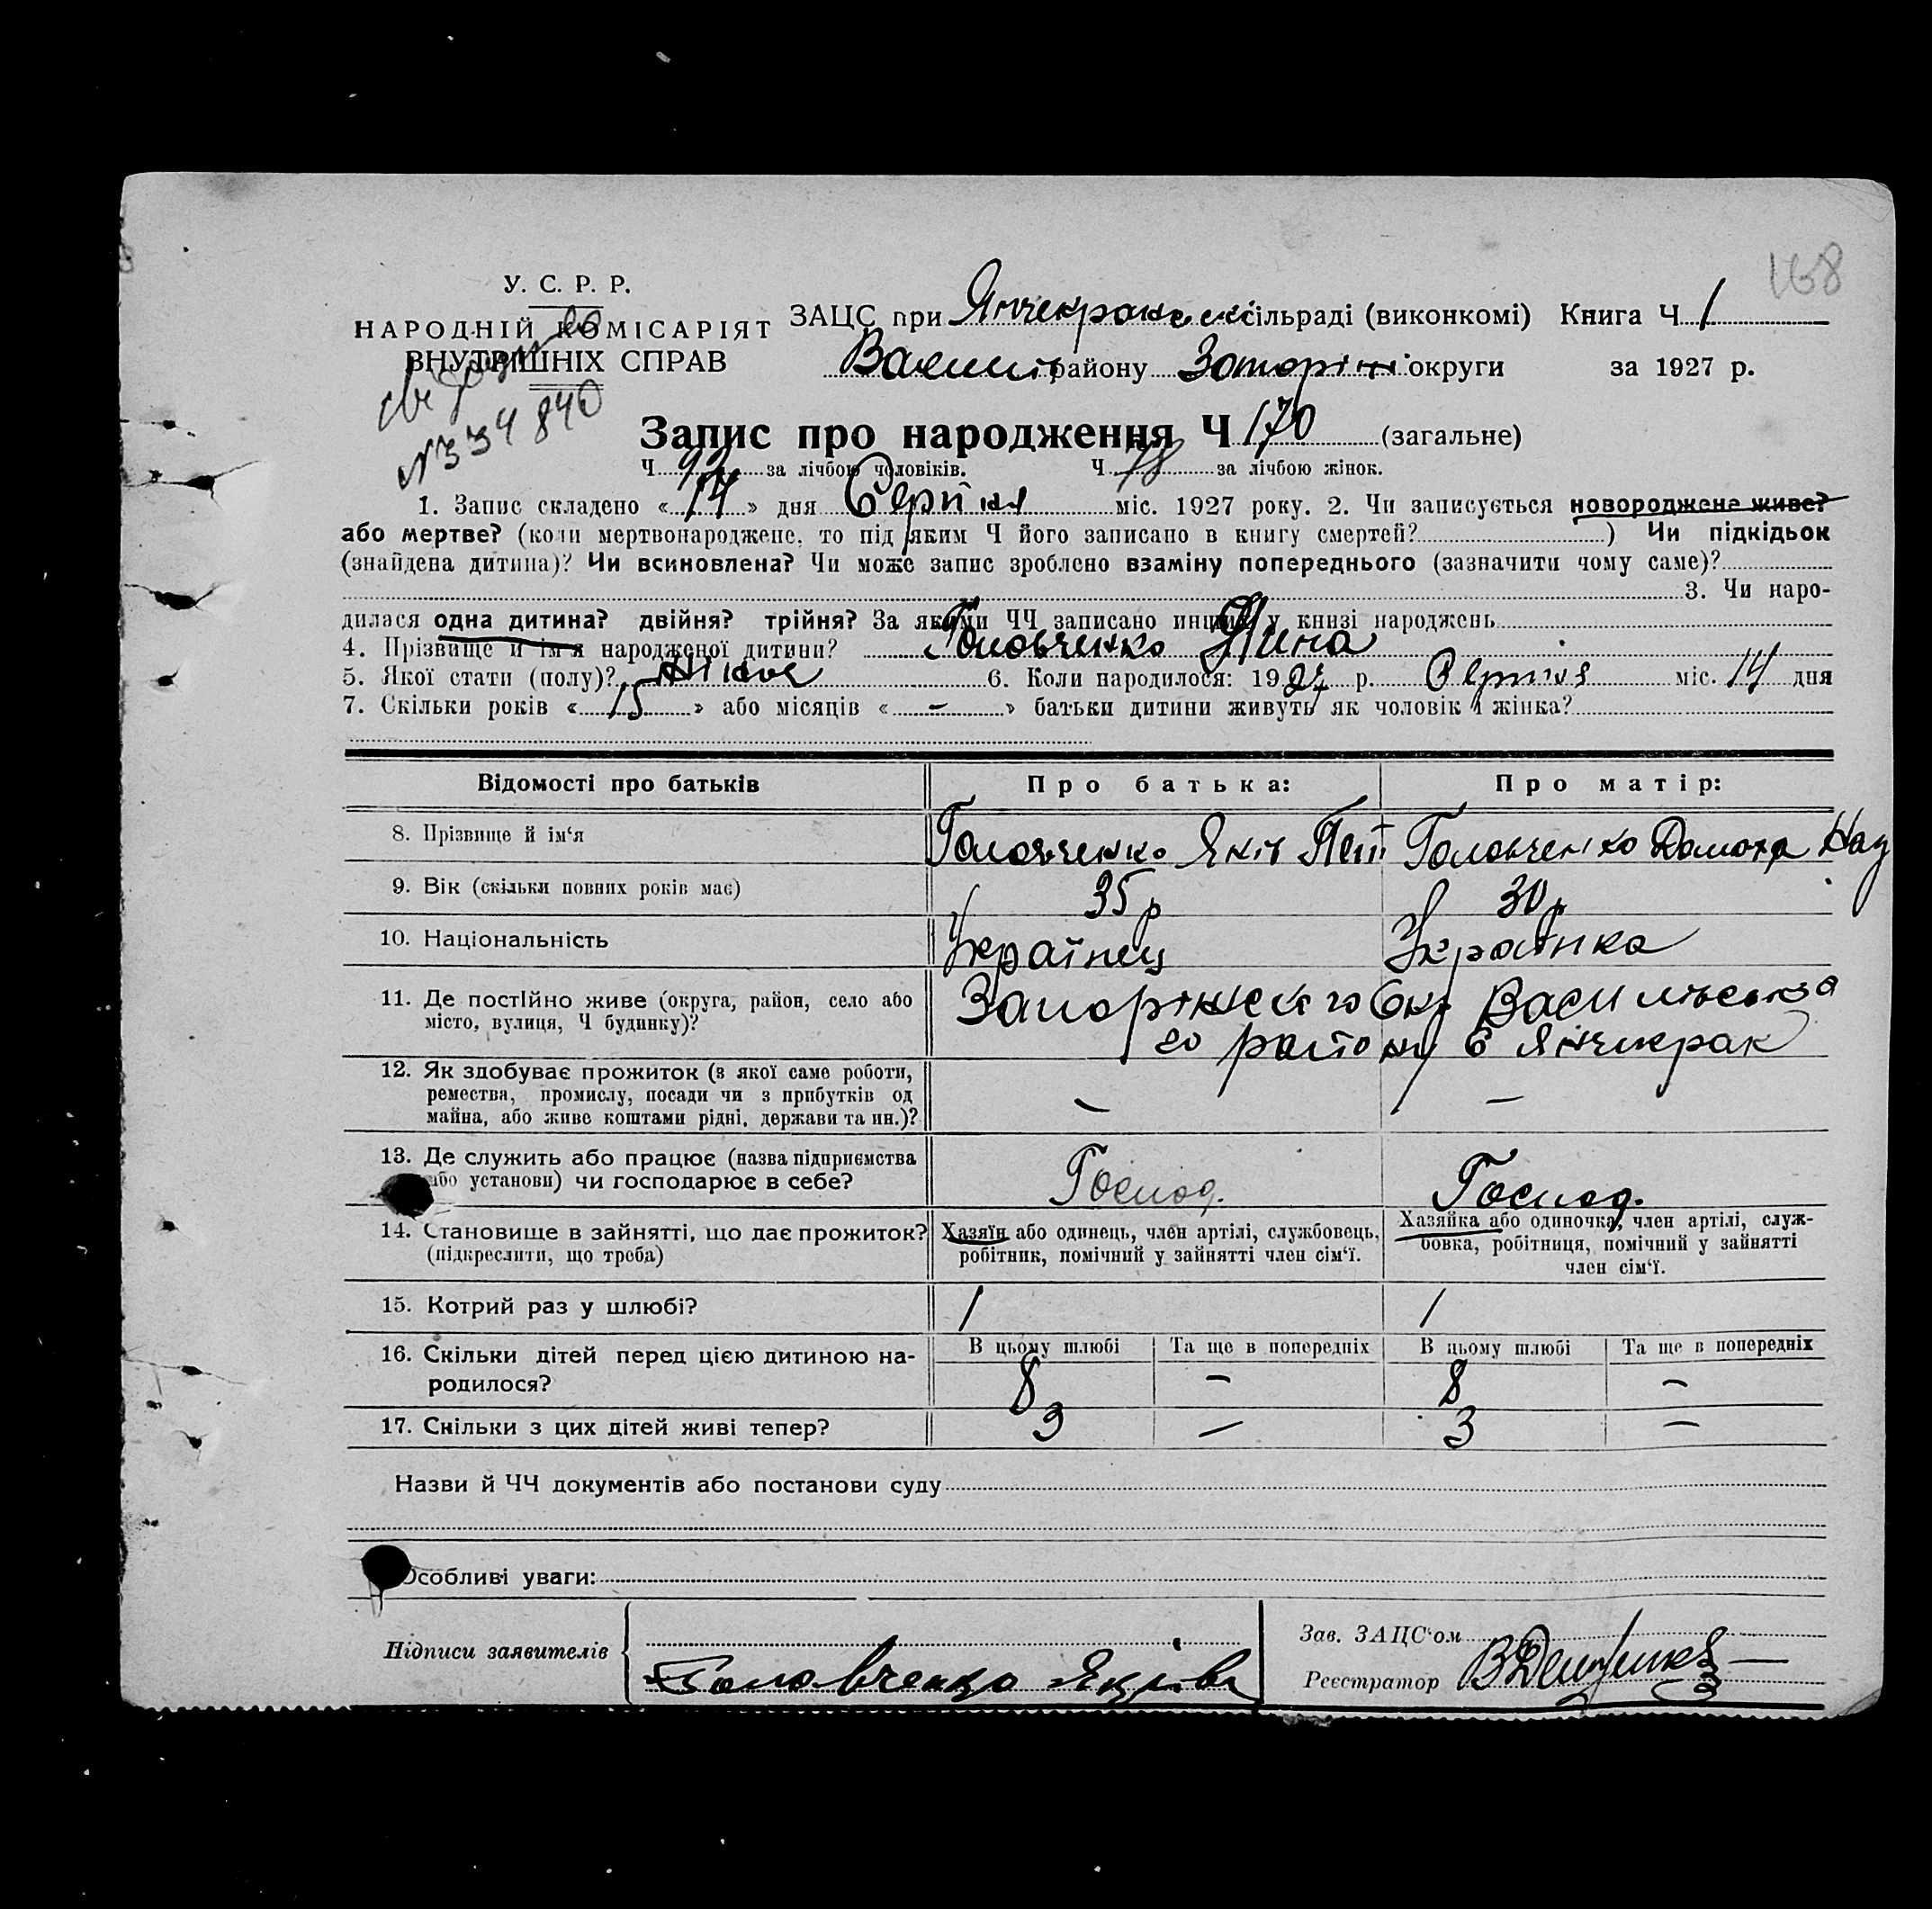 168
У. С. Р. Р.
НАРОДНІЙ КОМІСАРІЯТ
ВНУТРІШНІХ СПРАВ
N 334840
ЗАЦС при Янчекракській сільраді (виконкомі) Книга Ч 1
Васил району Запоріж округи за 1927 р.
Запис про народження Ч 170 (загальне)
Ч 92 за лічбою чоловіків. Ч 78 за лічбою жінок.
1. Запис складено « 14 » дня Серпня міс. 1927 року. 2. Чи записується новороджене живе?
або мертве? (коли мертвонароджене, то під яким Ч його записано в книгу смертей? ) Чи підкідьок
(знайдена дитина)? Чи всиновлена? Чи може запис зроблено взаміну попереднього (зазначити чому саме)?
3. Чи наро-
дилася одна дитина? двійня? трійня? За якими ЧЧ записано инших у книзі народжень
4. Прізвище й ім'я народженої дитини? Головченко Нина
5. Якої стати (полу)? Жіноче 6. Коли народилося: 1927 р. Серпня міс. 14 дня
7. Скільки років « 15 » або місяців « - » батьки дитини живуть як чоловік і жінка?
Відомості про батьків Про батька: Про матір:
8. Прізвище й ім‘я Головченко Яків Пет Головченко Домаха Наз
9. Вік (скільки повних років має) 35 р 30 р
10. Національність Українец Українка
11. Де постійно живе (округа, район, село або Запоріжского Окр Васильвсько
місто, вулиця, Ч будинку)? го району с Янчикрак
12. Як здобуває прожиток (з якої саме роботи,
ремества, промислу, посади чи з прибутків од
майна, або живе коштами рідні, держави та ин.)? - -
13. Де служить або працює (назва підприємства
або установи) чи господарює в себе? Господ. Господ.
14. Становище в зайнятті, що дає прожиток? Хазяїн або одинець, член артілі, службовець, Хазяйка або одиночка, член артілі, служ-
(підкреслити, що треба) робітник, помічний у зайнятті член сім‘ї. бовка, робітниця, помічний у зайнятті
член сім‘ї.
15. Котрий раз у шлюбі? 1 1
16. Скільки дітей перед цією дитиною на- В цьому шлюбі Та ще в попередніх В цьому шлюбі Та ще в попередніх
родилося? 8 - 8 -
17. Скільки з цих дітей живі тепер? 3 - 3 -
Назви й ЧЧ документів або постанови суду
Особливі уваги:
Підписи заявителів Головченко Яків
Зав. ЗАЦС‘ом
Реєстратор